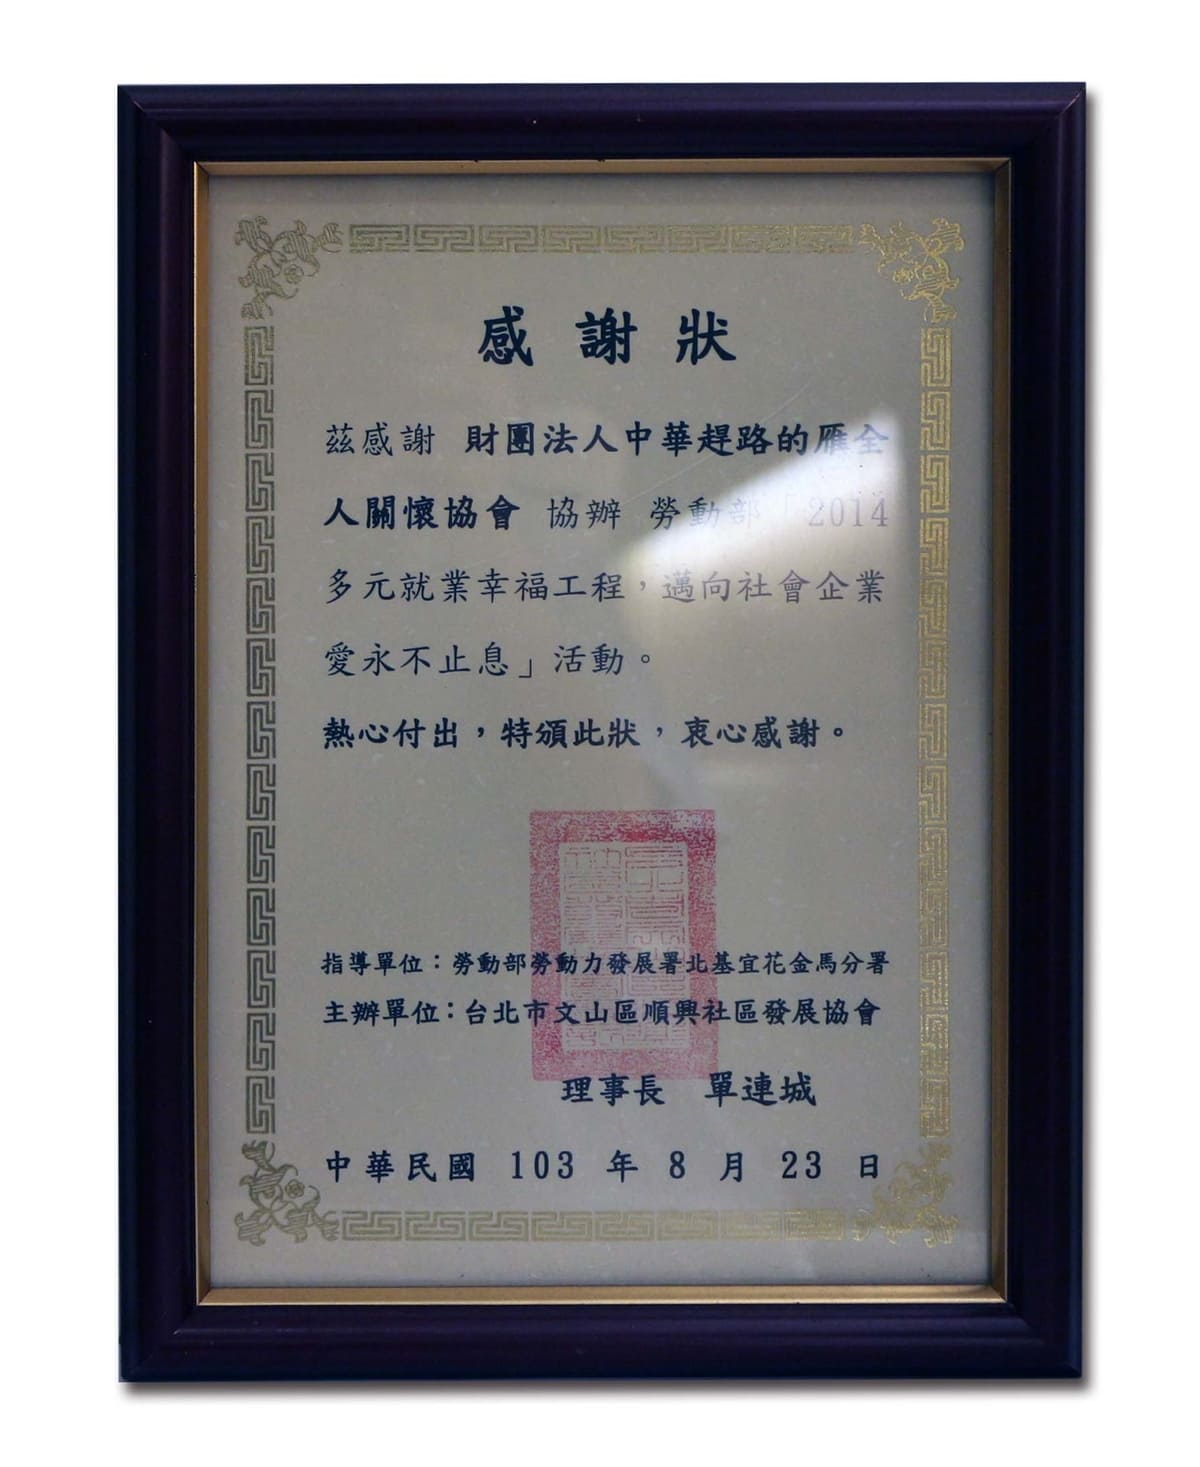 感謝狀
茲感謝 財團法人中華趕路的雁全
人關懷協會 協辦 勞動部「2014
多元就業幸福工程，邁向社會企業
愛永不止息」活動。
熱心付出，特頒此狀，衷心感謝。
指導單位：勞動部勞動力發展署北基宜花金馬分署
主辦單位：台北市文山區順興社區發展協會
理事長 單連城
中華民國 103 年 8 月 23 日